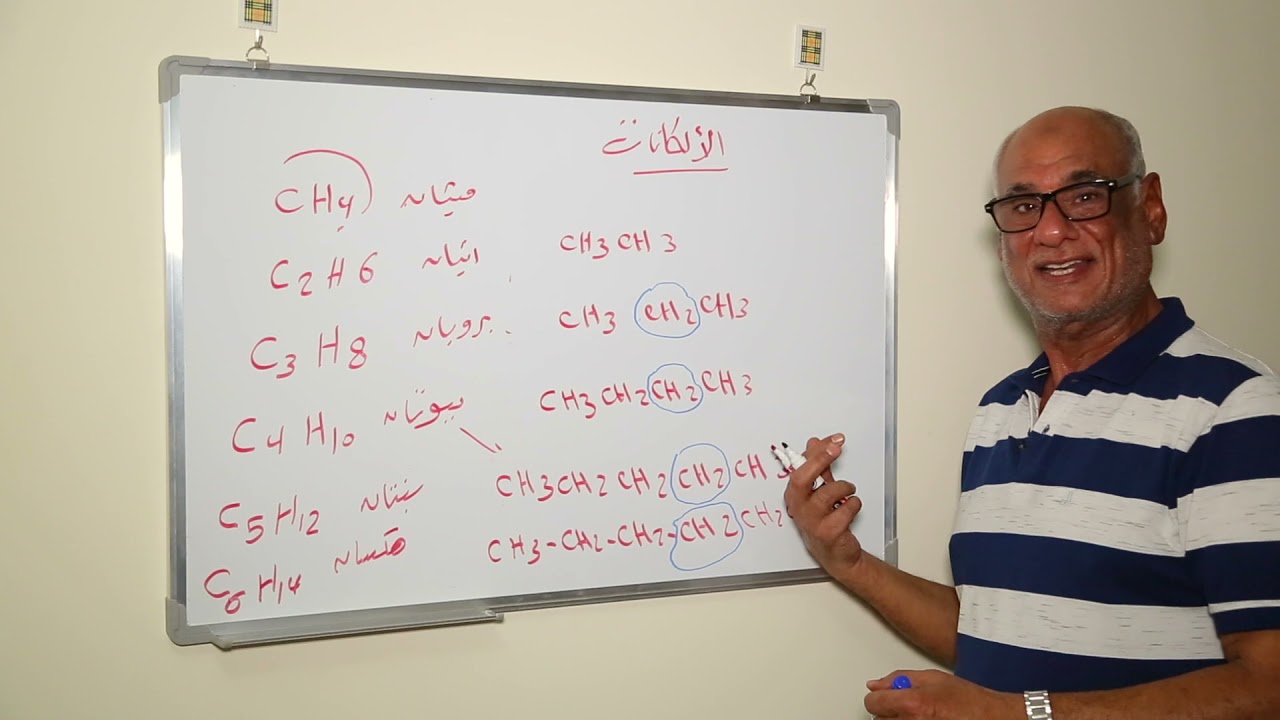 الألكانات
CH4 ميثان
C2H6 ايثان CH3CH3
C3H8 بروبان CH3 CH2CH3
C4H10 بيوتان CH3CH2CH2CH3
C5H12 بنتان CH3CH2CH2CH2CH3
C6H14 هكسان CH3-CH2-CH2-CH2CH2